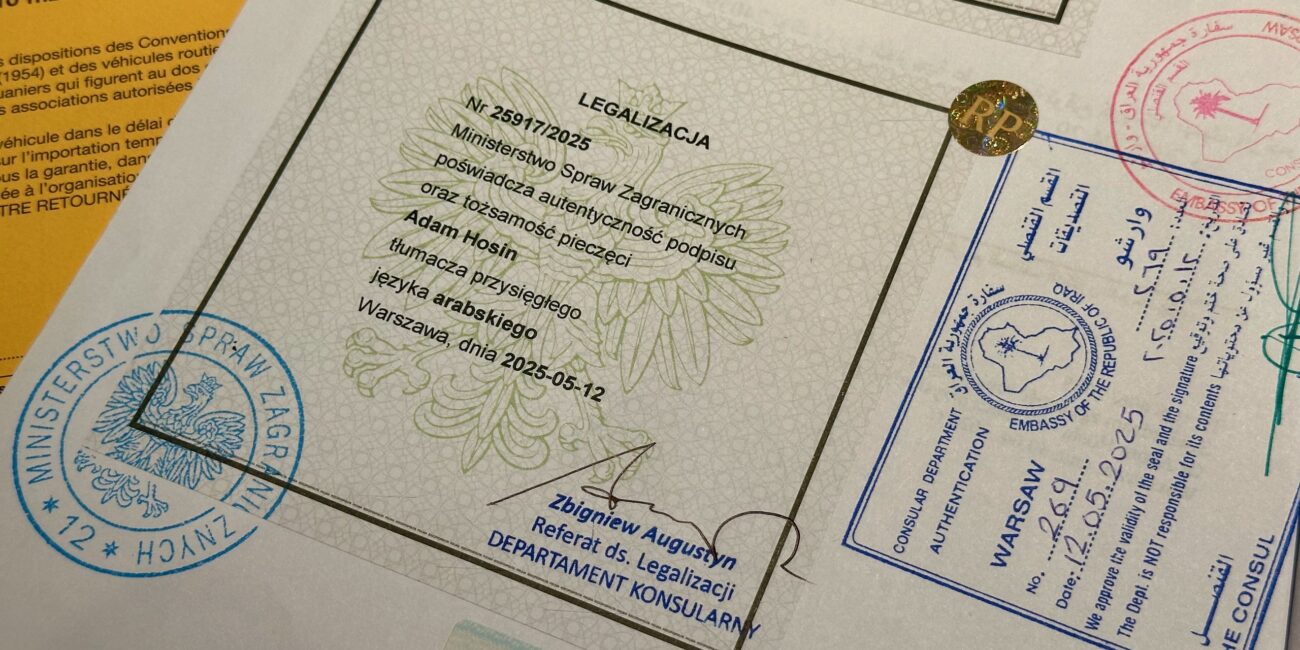 s dispositions des Convention
(1954) et des véhicules routie
uaniers qui figurent au dos
s associations autorisées
véhicule dans le délai
sur l'importation temp
ous la garantie, dan
ée à l'organisation
TRE RETOURNÉ
LEGALIZACJA
Nr 25917/2025
Ministerstwo Spraw Zagranicznych
poświadcza autentyczność podpisu
oraz tożsamość pieczęci
Adam Hosin
tłumacza przysięgłego
języka arabskiego
Warszawa, dnia 2025-05-12
Zbigniew Augustyn
Referat ds. Legalizacji
DEPARTAMENT KONSULARNY
* MINISTERSTWO SPRAW ZAGRANICZNYCH *
12
RP
سفارة جمهورية العراق - وارشو
القسم القنصلي
EMBASSY OF
القسم القنصلي
التصديقات
وارشو
٢٦٩
سفارة جمهورية العراق
EMBASSY OF THE REPUBLIC OF IRAQ
CONSULAR DEPARTMENT
AUTHENTICATION
WARSAW
No. 269
Date: 12.05.2025
We approve the validity of the seal and the signature
The Dept. is NOT responsible for its contents
القنصل
HE CONSUL